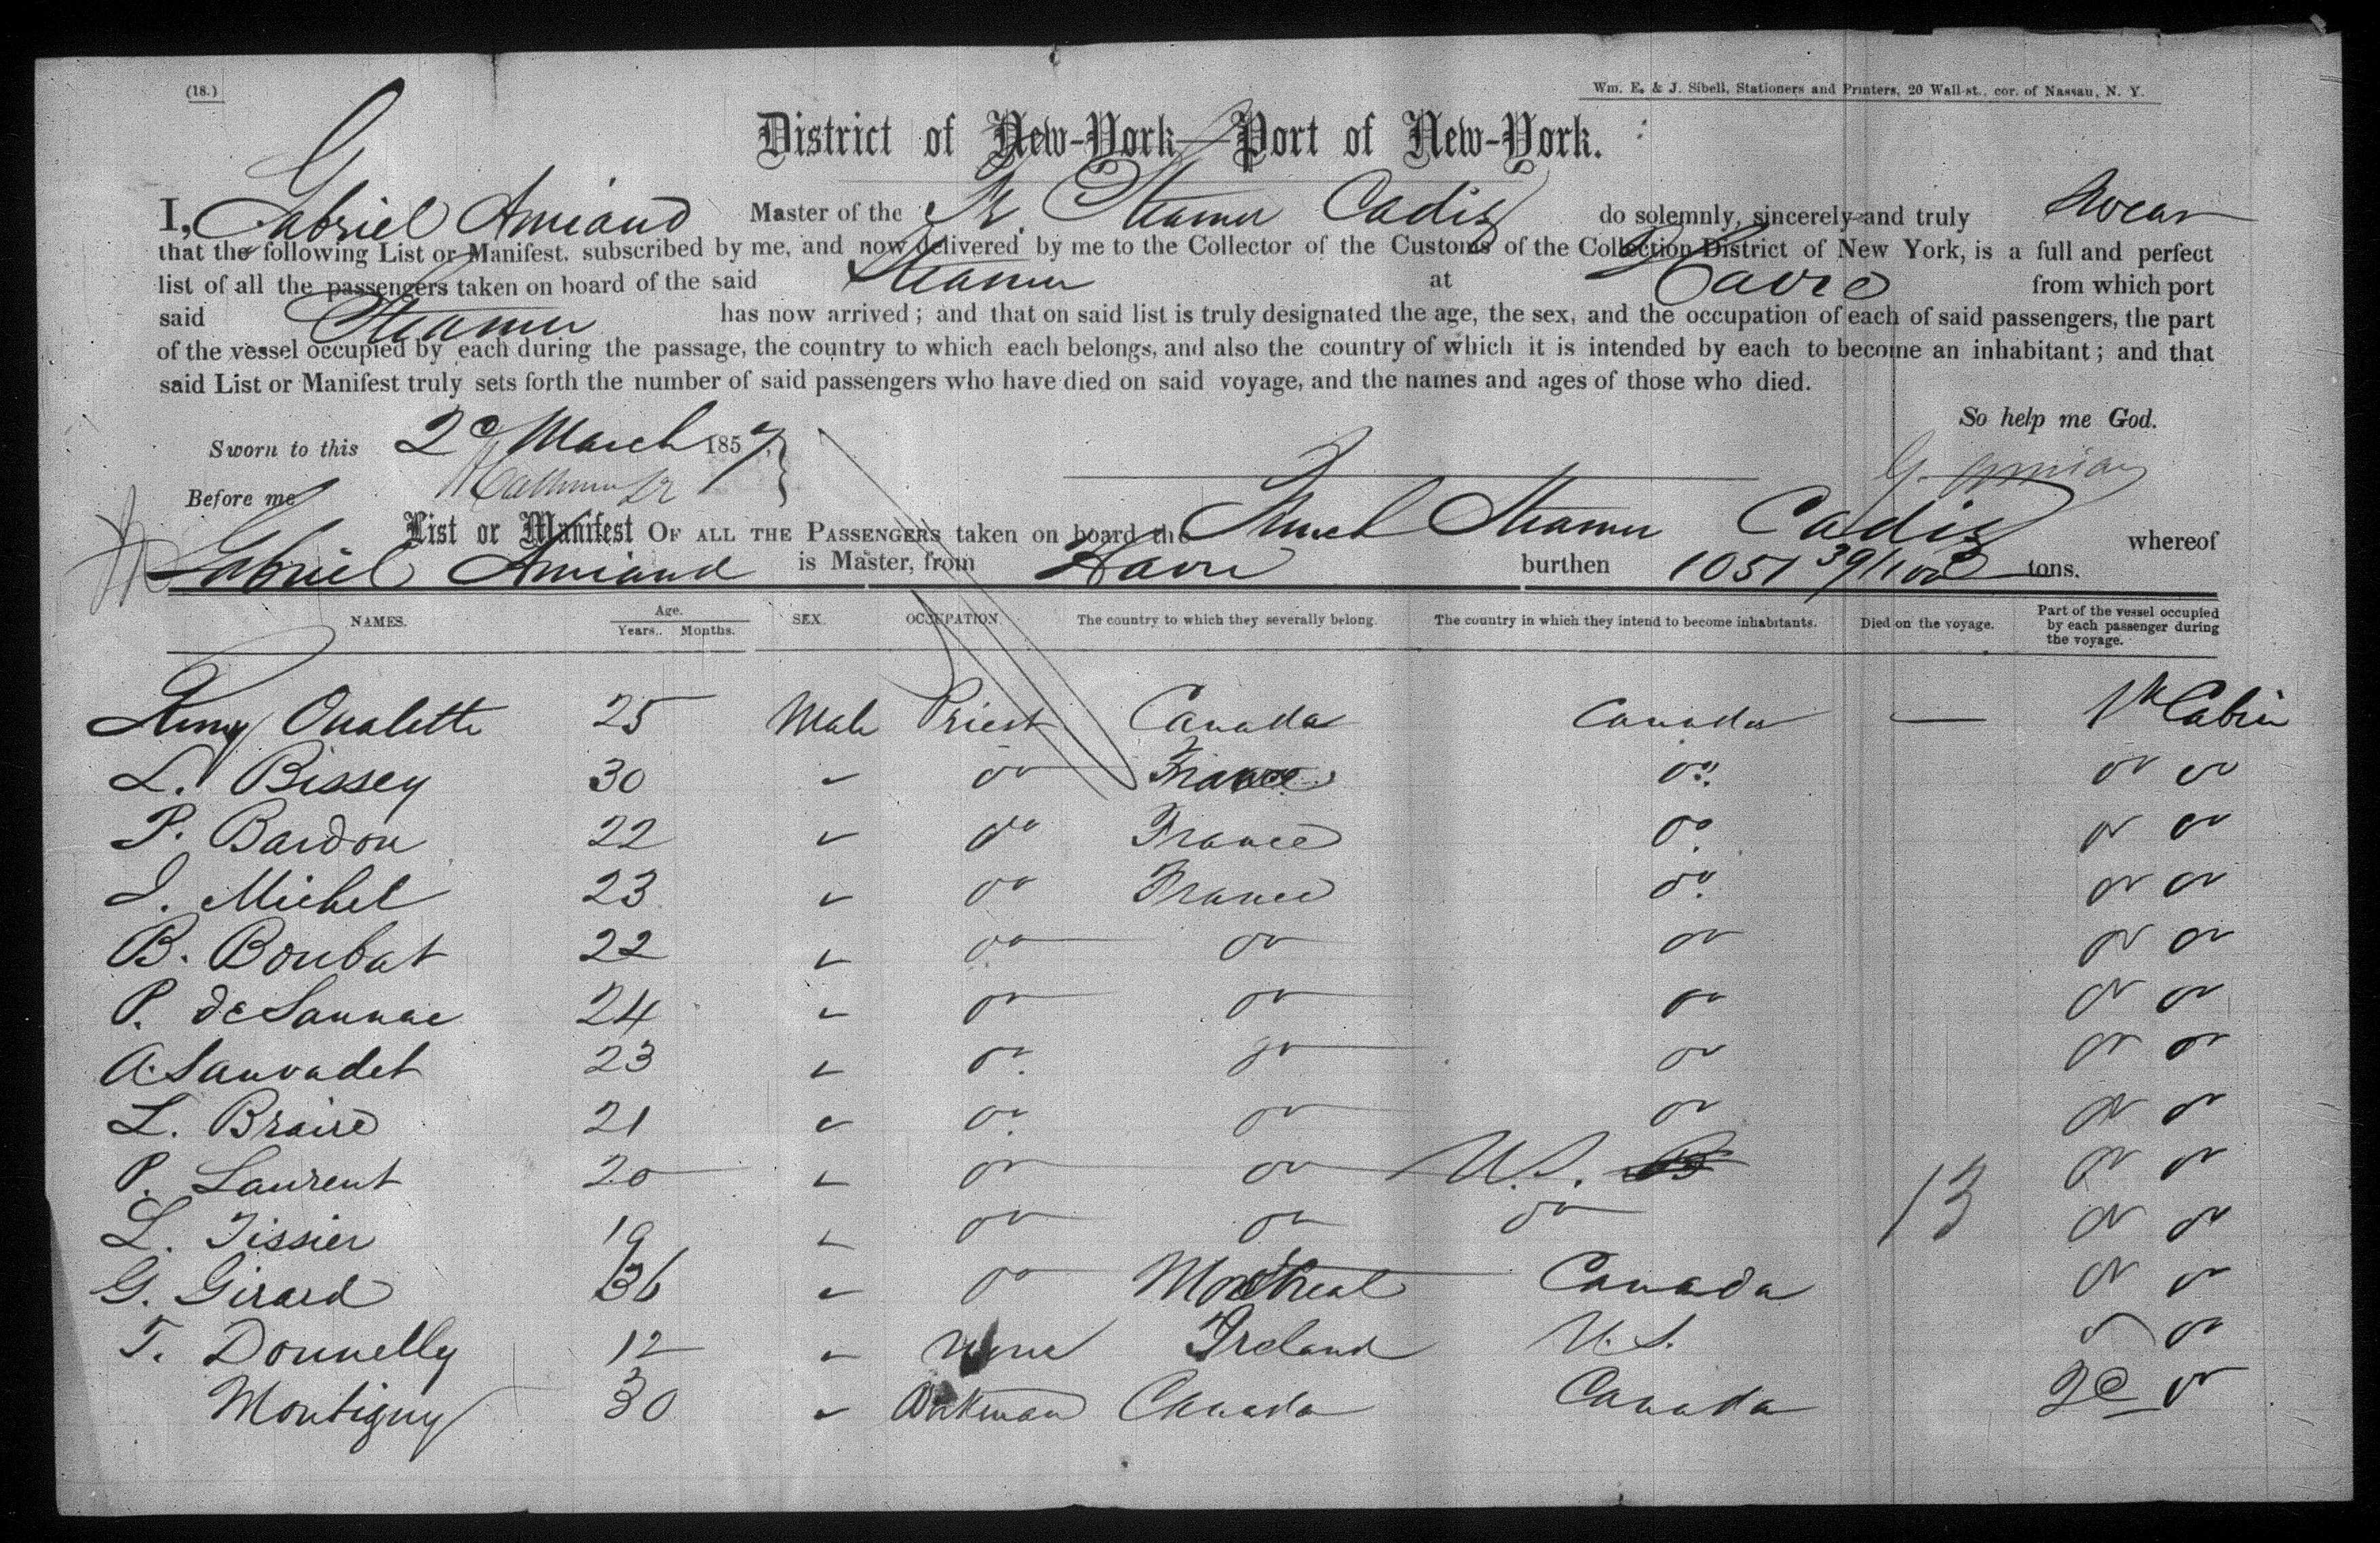 (18.)
Wm. E. & J. Sibell, Stationers and Printers, 20 Wall-st., cor. of Nassau, N. Y.
District of New-York—Port of New-York.
I, Gabriel Amiaud Master of the Fr. Steamer Cadiz do solemnly, sincerely and truly swear
that the following List or Manifest. subscribed by me, and now delivered by me to the Collector of the Customs of the Collection District of New York, is a full and perfect
list of all the passengers taken on board of the said Steamer at Havre from which port
said Steamer has now arrived; and that on said list is truly designated the age, the sex, and the occupation of each of said passengers, the part
of the vessel occupied by each during the passage, the country to which each belongs, and also the country of which it is intended by each to become an inhabitant; and that
said List or Manifest truly sets forth the number of said passengers who have died on said voyage, and the names and ages of those who died.
So help me God.
Sworn to this 2d March 1857,
Before me
List or Manifest OF ALL THE PASSENGERS taken on board the French Steamer Cadiz whereof
Gabriel Amiaud is Master, from Havre burthen 1051 39/100 tons.
NAMES. Age. Years. Months. SEX. OCCUPATION. The country to which they severally belong. The country in which they intend to become inhabitants. Died on the voyage. Part of the vessel occupied by each passenger during the voyage.
Remy Oualette 25 Male Priest Canada Canada — 1st Cabin
L. Bissey 30 " do France do do do
P. Bardon 22 " do France do do do
J. Michel 23 " do France do do do
B. Boubat 22 " do do do do do
P. de Saunac 24 " do do do do do
A. Sauvadet 23 " do do do do do
L. Braire 21 " do do do do do
P. Laurent 20 " do do U.S. do do
L. Tissier 19 " do do do 13 do do
G. Girard 36 " do Montreal Canada do do
T. Donnelly 12 " None Ireland U.S. do do
Montigny 30 " Workman Canada Canada 2d do